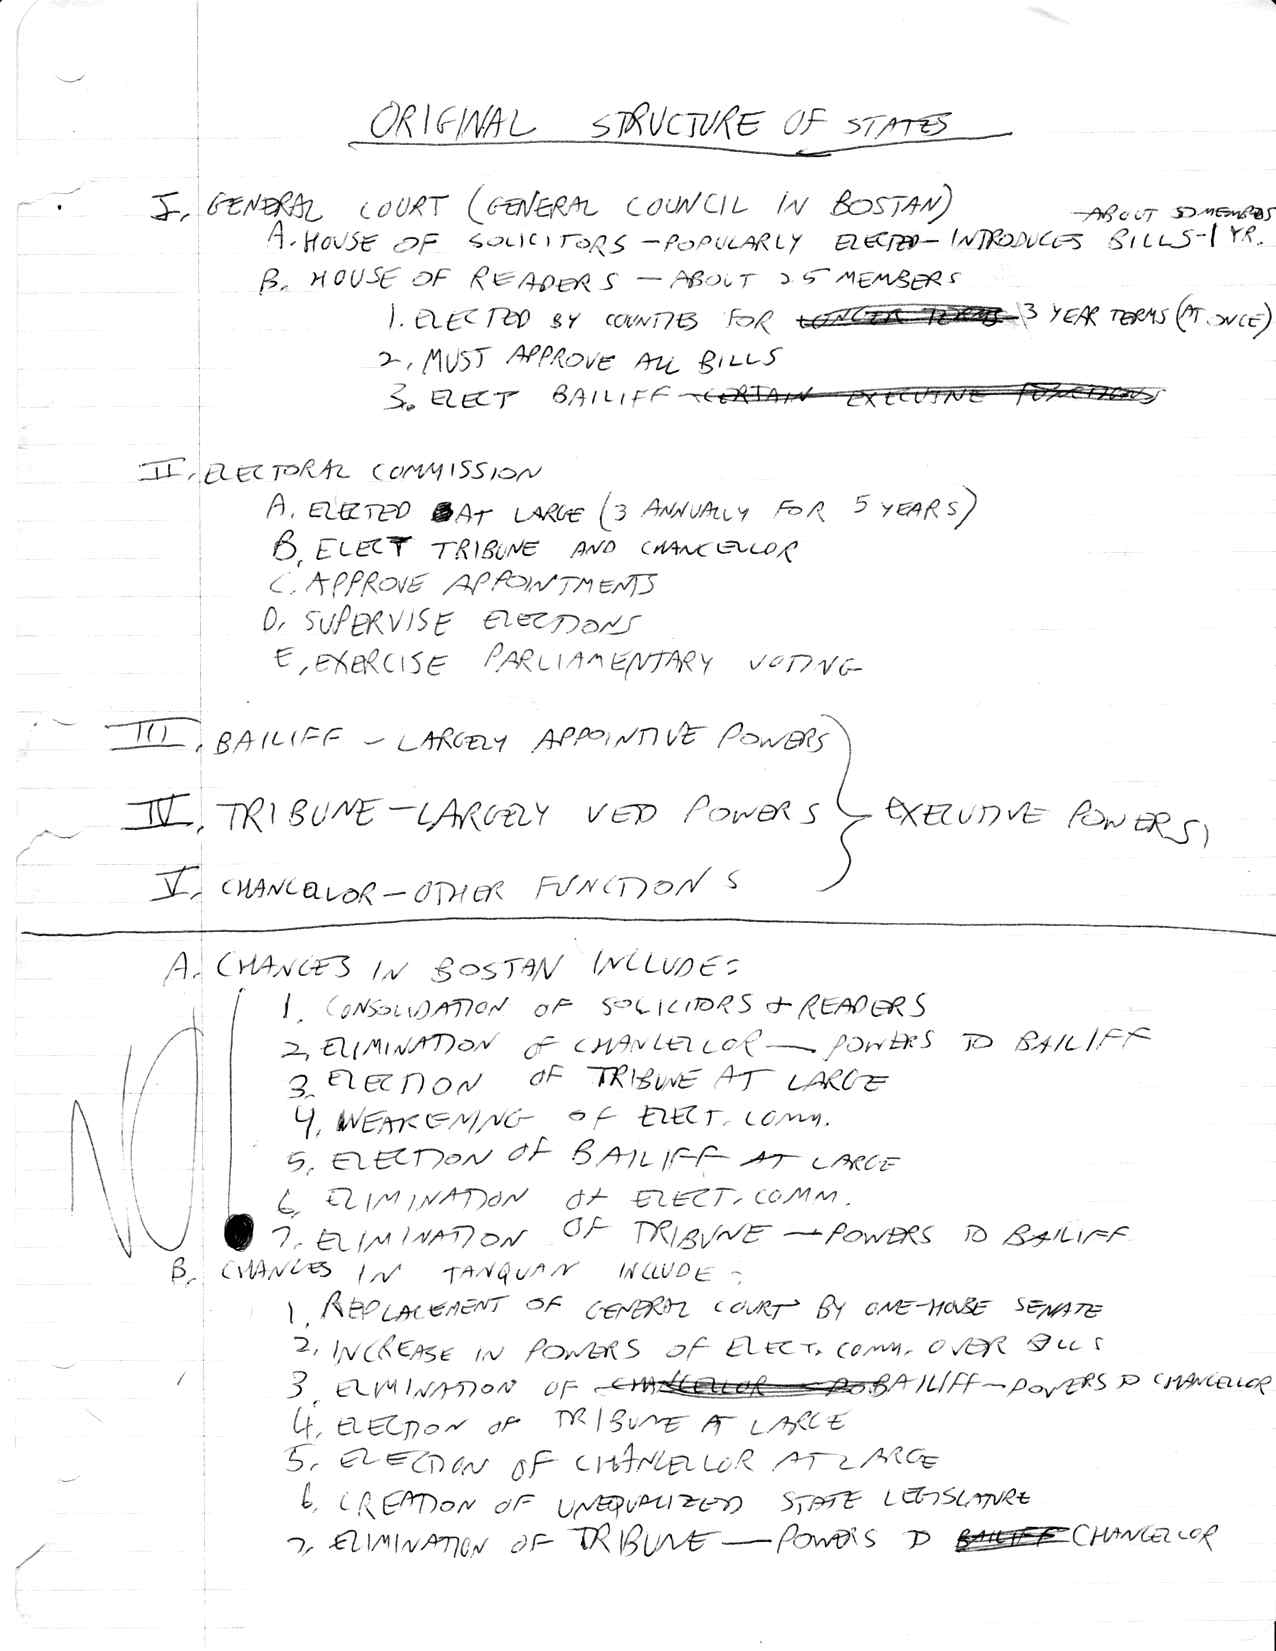 ORIGINAL STRUCTURE OF STATES
I. GENERAL COURT (GENERAL COUNCIL IN BOSTAN)
—ABOUT 50 MEMBERS
A. HOUSE OF SOLICITORS – POPULARLY ELECTED – INTRODUCES BILLS – 1 YR.
B. HOUSE OF READERS – ABOUT 25 MEMBERS
1. ELECTED BY COUNTIES FOR LONGER TERMS 3 YEAR TERMS (AT ONCE)
2. MUST APPROVE ALL BILLS
3. ELECT BAILIFF – CERTAIN EXECUTIVE FUNCTIONS
II. ELECTORAL COMMISSION
A. ELECTED AT LARGE (3 ANNUALLY FOR 5 YEARS)
B. ELECT TRIBUNE AND CHANCELLOR
C. APPROVE APPOINTMENTS
D. SUPERVISE ELECTIONS
E. EXERCISE PARLIAMENTARY VOTING
III. BAILIFF – LARGELY APPOINTIVE POWERS
IV. TRIBUNE – LARGELY VETO POWERS } EXECUTIVE POWERS
V. CHANCELLOR – OTHER FUNCTIONS
A. CHANGES IN BOSTAN INCLUDE:
1. CONSOLIDATION OF SOLICITORS + READERS
2. ELIMINATION OF CHANCELLOR — POWERS TO BAILIFF
3. ELECTION OF TRIBUNE AT LARGE
4. WEAKENING OF ELECT. COMM.
NO
5. ELECTION OF BAILIFF AT LARGE
6. ELIMINATION OF ELECT. COMM.
7. ELIMINATION OF TRIBUNE – POWERS TO BAILIFF
B. CHANGES IN TANQUAN INCLUDE:
1. REPLACEMENT OF GENERAL COURT BY ONE-HOUSE SENATE
2. INCREASE IN POWERS OF ELECT. COMM. OVER BILLS
3. ELIMINATION OF CHANCELLOR – PO BAILIFF – POWERS TO CHANCELLOR
4. ELECTION OF TRIBUNE AT LARGE
5. ELECTION OF CHANCELLOR AT LARGE
6. CREATION OF UNEQUALIZED STATE LEGISLATURE
7. ELIMINATION OF TRIBUNE — POWERS TO BAILIFF CHANCELLOR